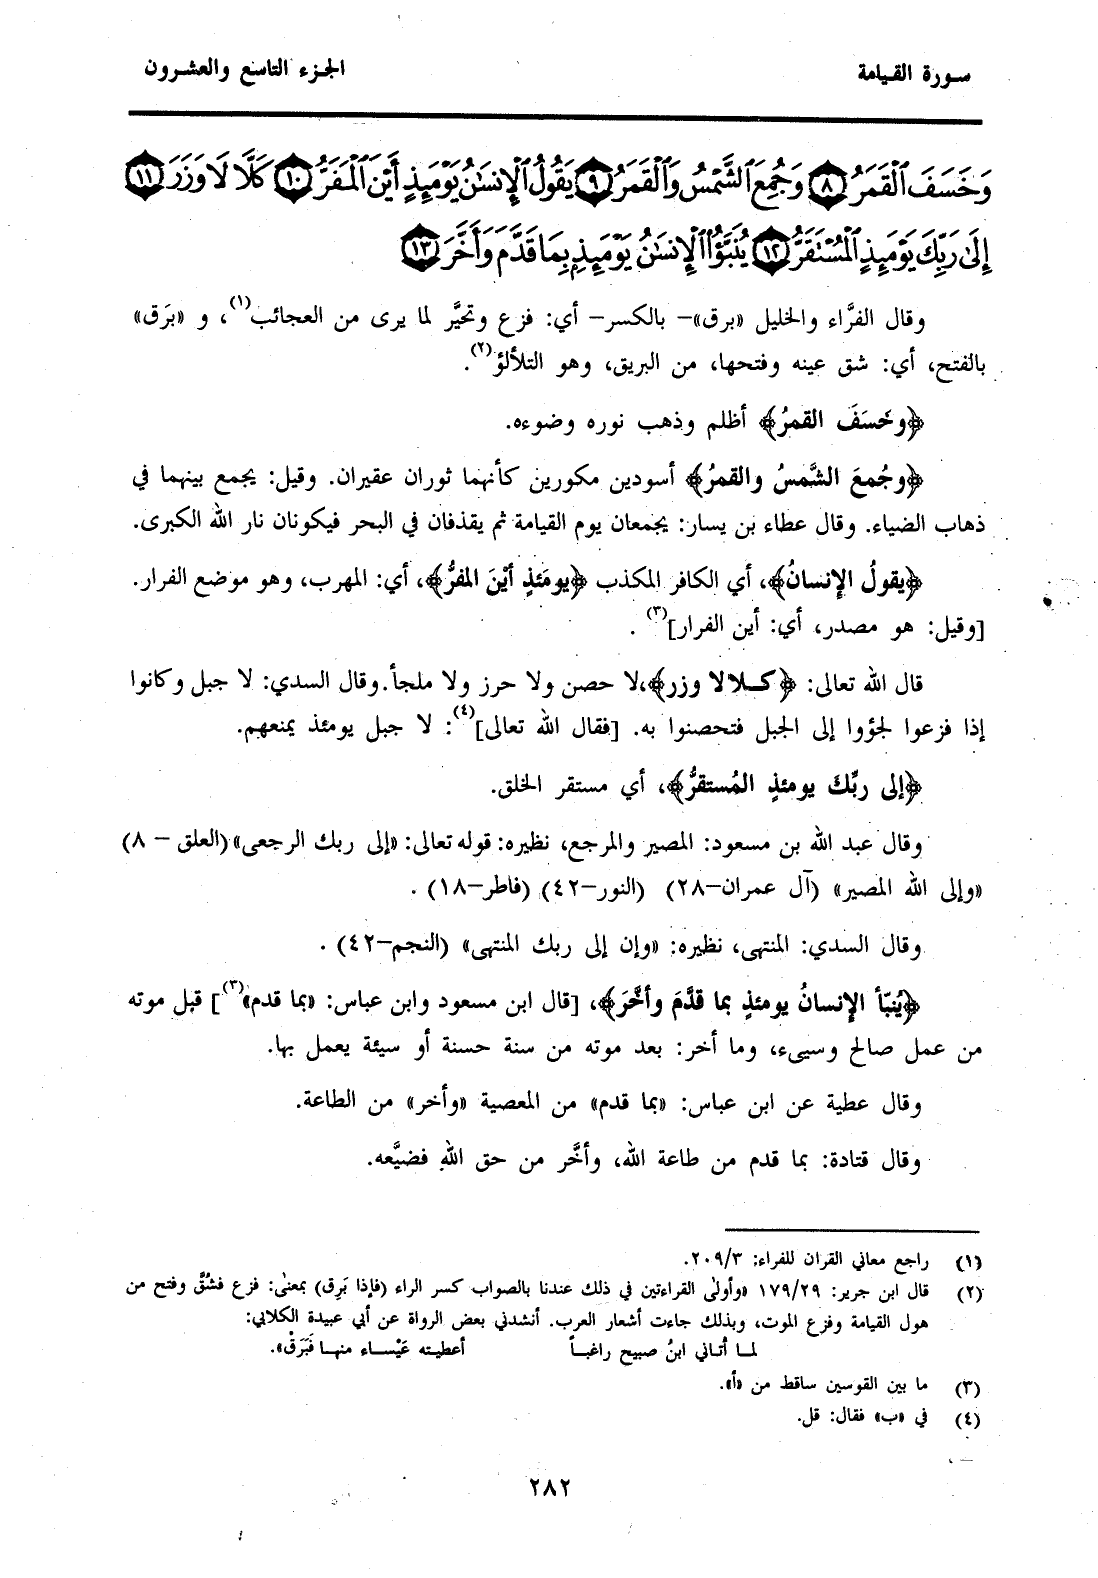 سورة القيامة
الجزء التاسع والعشرون
وَخَسَفَ ٱلْقَمَرُ ٨ وَجُمِعَ ٱلشَّمْسُ وَٱلْقَمَرُ ٩ يَقُولُ ٱلْإِنسَـٰنُ يَوْمَئِذٍ أَيْنَ ٱلْمَفَرُّ ١٠ كَلَّا لَا وَزَرَ ١١
إِلَىٰ رَبِّكَ يَوْمَئِذٍ ٱلْمُسْتَقَرُّ ١٢ يُنَبَّؤُا ٱلْإِنسَـٰنُ يَوْمَئِذٍۭ بِمَا قَدَّمَ وَأَخَّرَ ١٣
وقال الفرَّاء والخليل «برق»– بالكسر– أي: فزع وتحيَّر لما يرى من العجائب(١)، و «برَق»
بالفتح، أي: شق عينه وفتحها، من البريق، وهو التلألؤ(٢).
﴿وخسَفَ القمرُ﴾ أظلم وذهب نوره وضوءه.
﴿وجُمعَ الشَّمسُ والقمرُ﴾ أسودين مكورين كأنهما ثوران عقيران. وقيل: يجمع بينهما في
ذهاب الضياء. وقال عطاء بن يسار: يجمعان يوم القيامة ثم يقذفان في البحر فيكونان نار الله الكبرى.
﴿يقولُ الإنسانُ﴾، أي الكافر المكذب ﴿يومَئذٍ أيْنَ المفرُّ﴾، أي: المهرب، وهو موضع الفرار.
[وقيل: هو مصدر، أي: أين الفرار](٣) .
قال الله تعالى: ﴿كـلالا وزر﴾،لا حصن ولا حرز ولا ملجأ. وقال السدي: لا جبل وكانوا
إذا فزعوا لجؤوا إلى الجبل فتحصنوا به. [فقال الله تعالى](٤): لا جبل يومئذ يمنعهم.
﴿إلى ربِّك يومئذٍ المُستقرُّ﴾، أي مستقر الخلق.
وقال عبد الله بن مسعود: المصير والمرجع، نظيره: قوله تعالى: «إلى ربك الرجعى»(العلق – ٨)
«وإلى الله المصير» (آل عمران–٢٨) (النور–٤٢) (فاطر–١٨) .
وقال السدي: المنتهى، نظيره: «وإن إلى ربك المنتهى» (النجم–٤٢) .
﴿يُنبّأ الإنسانُ يومئذٍ بما قدَّمَ وأخَّرَ﴾، [قال ابن مسعود وابن عباس: «بما قدم»(٣)] قبل موته
من عمل صالح وسيىء، وما أخر: بعد موته من سنة حسنة أو سيئة يعمل بها.
وقال عطية عن ابن عباس: «بما قدم» من المعصية «وأخر» من الطاعة.
وقال قتادة: بما قدم من طاعة الله، وأخَّر من حق اللهِ فضيَّعه.
(١) راجع معاني القران للفراء: ٢٠٩/٣.
(٢) قال ابن جرير: ١٧٩/٢٩ «وأولى القراءتين في ذلك عندنا بالصواب كسر الراء (فإذا بَرِق) بمعنى: فزع فشُقَّ وفتح من
هول القيامة وفزع الموت، وبذلك جاءت أشعار العرب. أنشدني بعض الرواة عن أبي عبيدة الكلابي:
لمـا أتـاني ابنُ صبيح راغبـاً أعطيـته عَيْسـاء منهـا فَبَرَقْ».
(٣) ما بين القوسين ساقط من «أ».
(٤) في «ب» فقال: قل.
٢٨٢